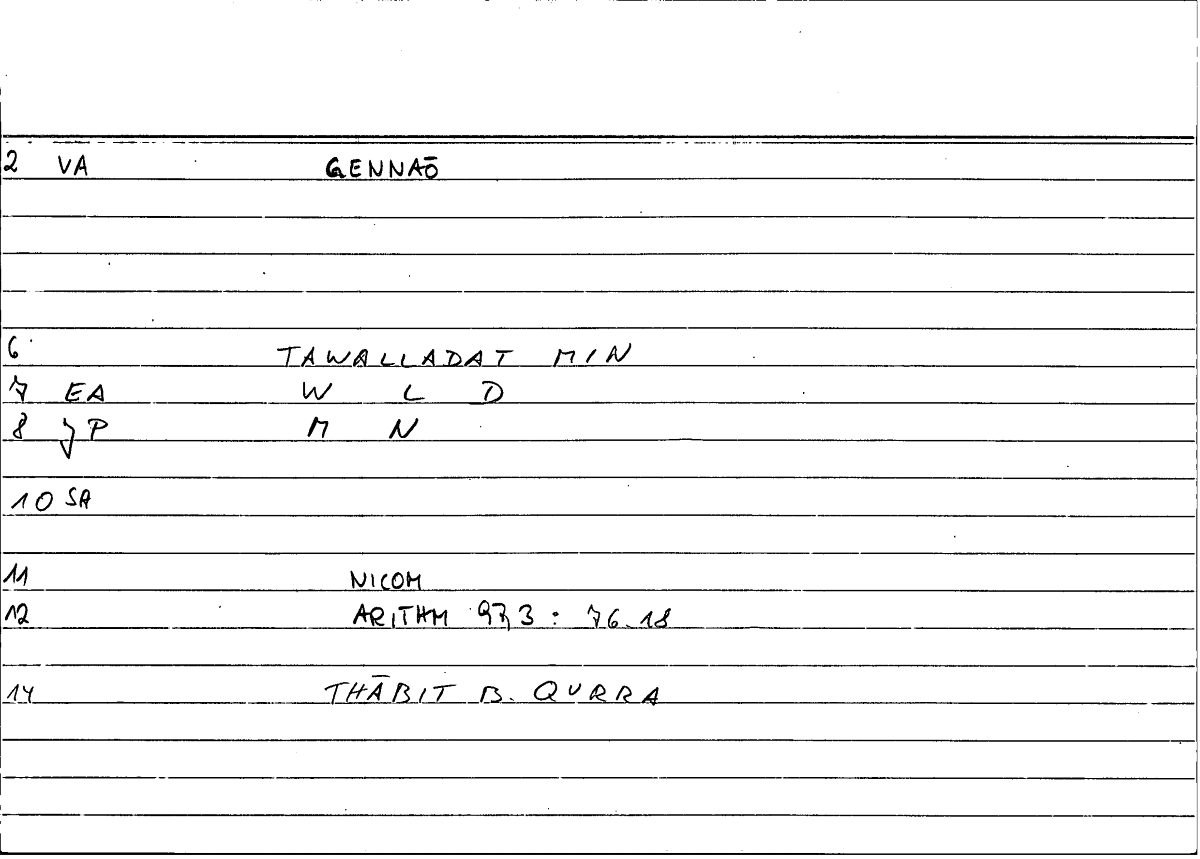 2 VA GENNAŌ
6 TAWALLADAT MIN
7 EA W L D
8 JP M N
10 SA
11 NICOM
12 ARITHM 97,3 : 76.18
14 THĀBIT B. QURRA